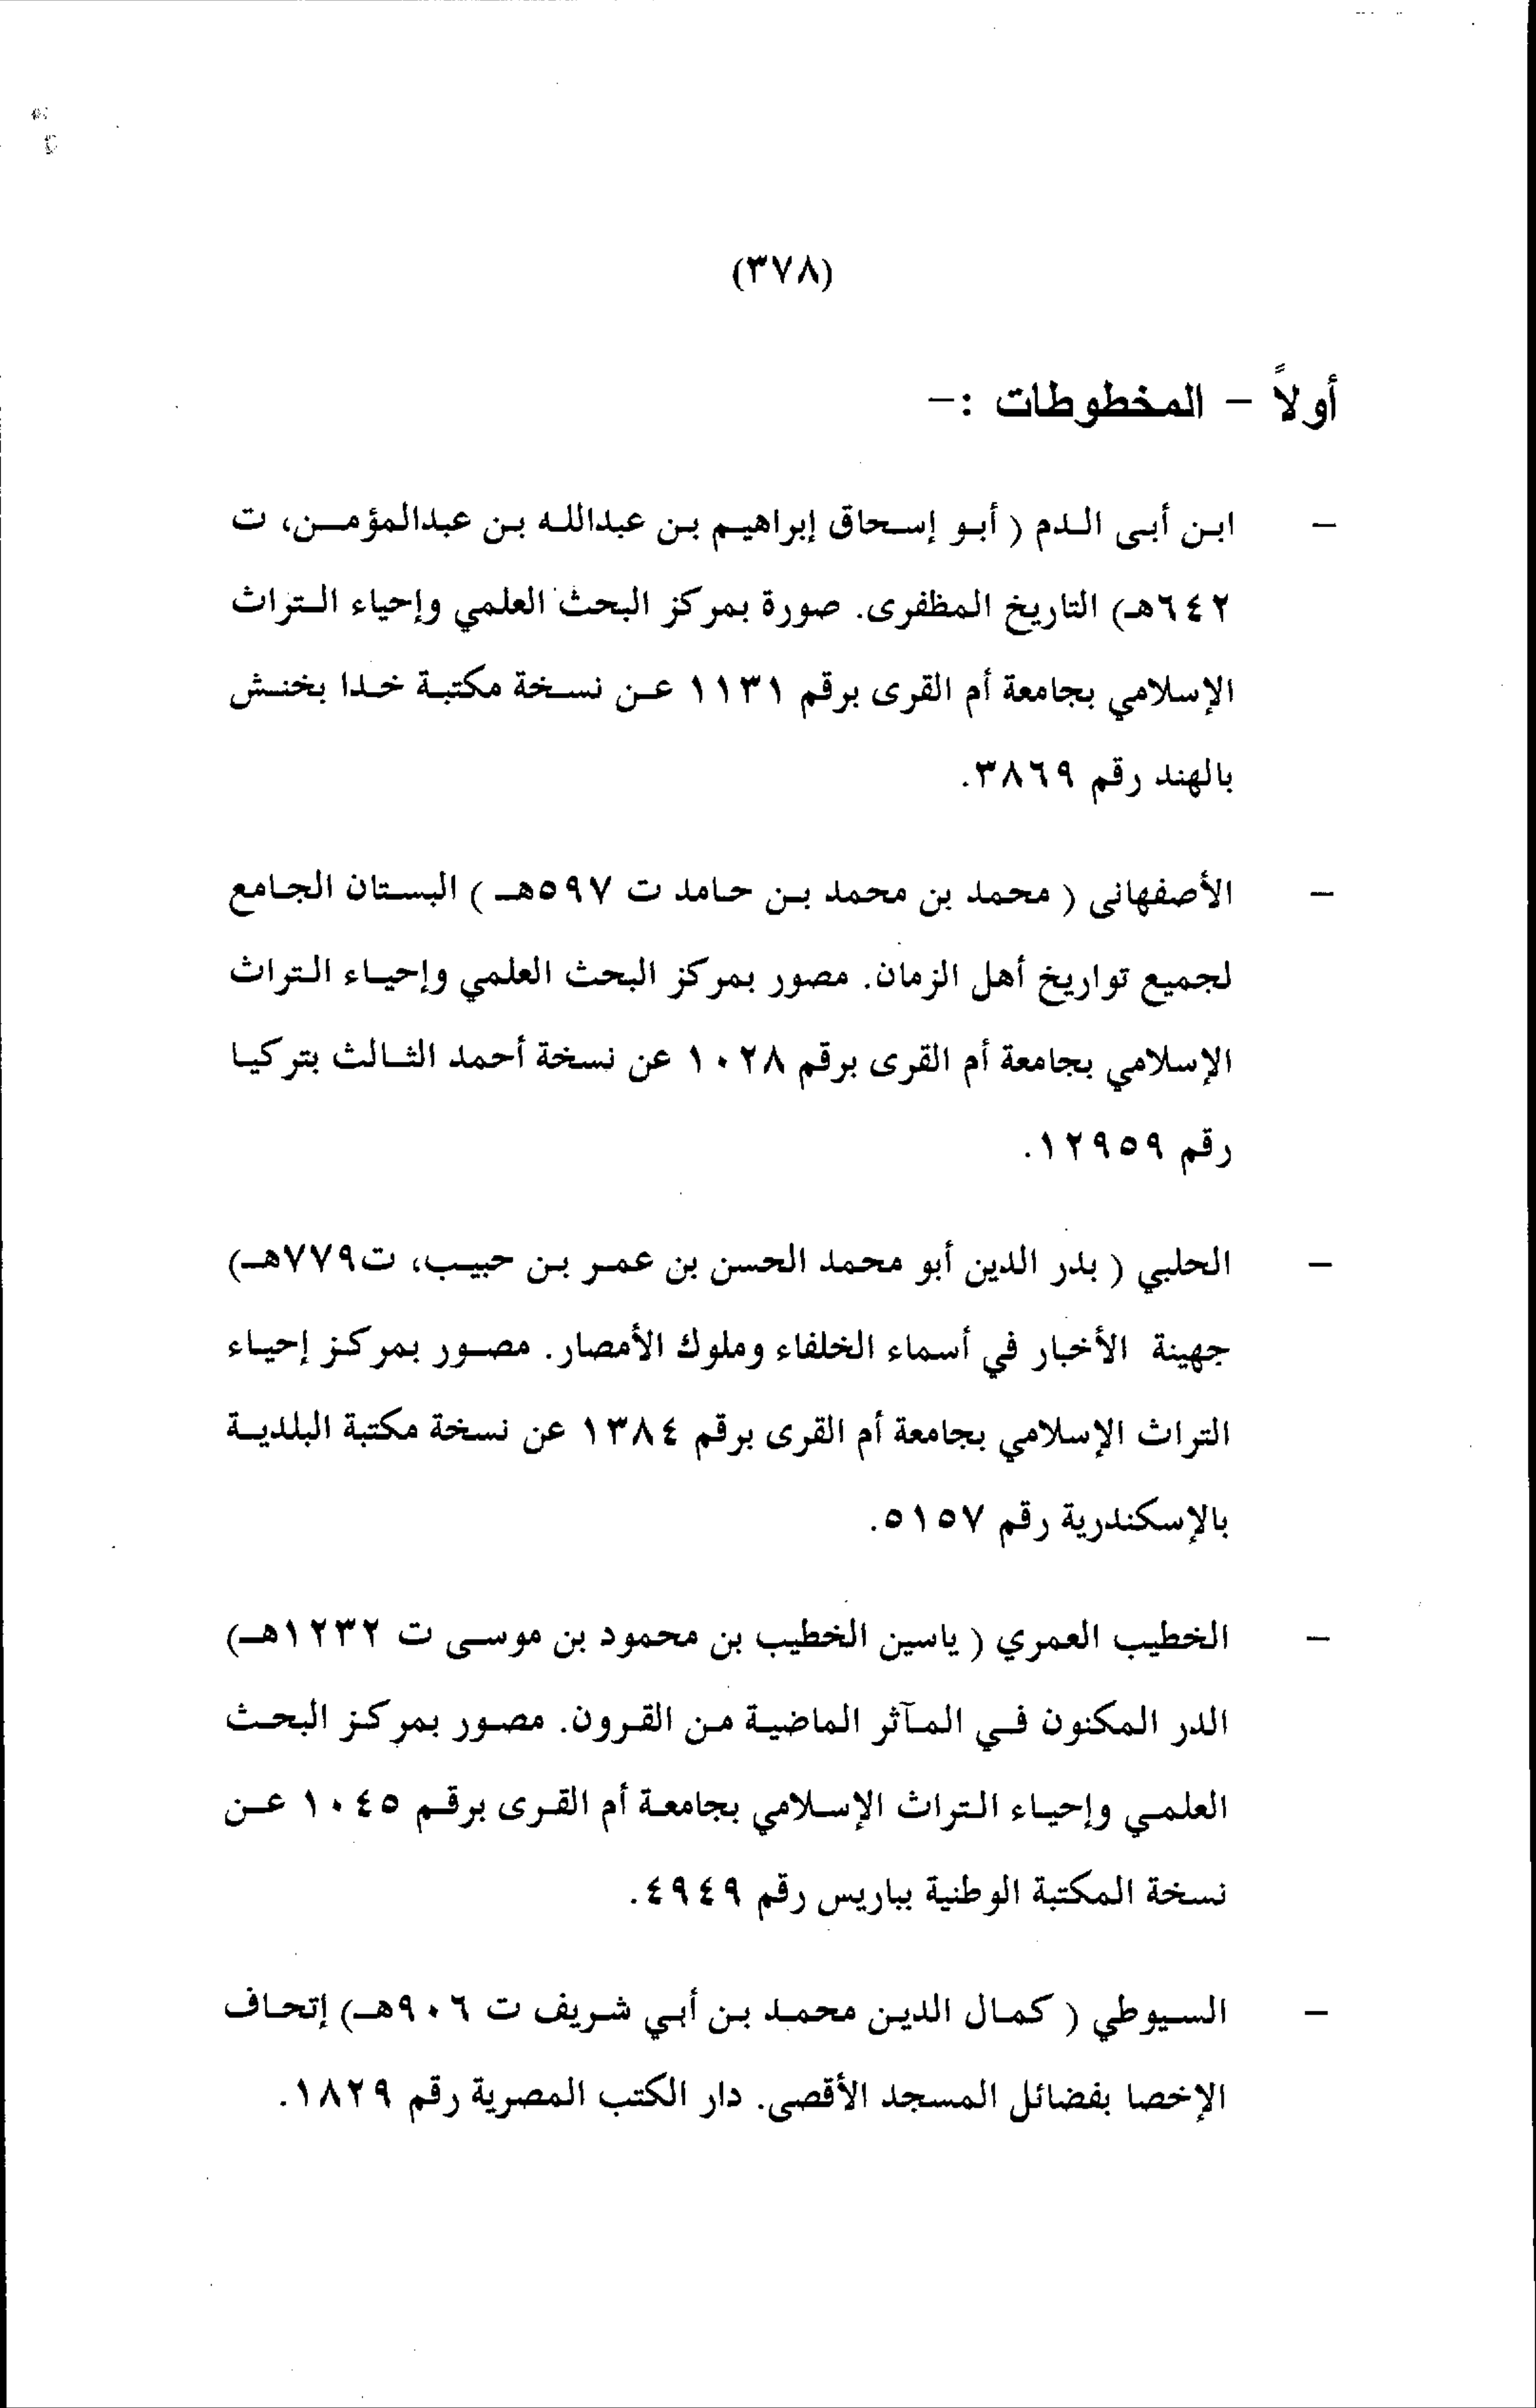 (٣٧٨)
أولاً - المخطوطات :-
- ابن أبى الدم ( أبو إسحاق إبراهيم بن عبدالله بن عبدالمؤمن، ت
٦٤٢هـ) التاريخ المظفرى. صورة بمركز البحث العلمي وإحياء التراث
الإسلامي بجامعة أم القرى برقم ١١٣١ عن نسخة مكتبة خدا بخنش
بالهند رقم ٣٨٦٩.
- الأصفهانى ( محمد بن محمد بن حامد ت ٥٩٧هـ ) البستان الجامع
لجميع تواريخ أهل الزمان. مصور بمركز البحث العلمي وإحياء التراث
الإسلامي بجامعة أم القرى برقم ١٠٢٨ عن نسخة أحمد الثالث بتركيا
رقم ١٢٩٥٩.
- الحلبي ( بدر الدين أبو محمد الحسن بن عمر بن حبيب، ت٧٧٩هـ)
جهينة الأخبار في أسماء الخلفاء وملوك الأمصار. مصور بمركز إحياء
التراث الإسلامي بجامعة أم القرى برقم ١٣٨٤ عن نسخة مكتبة البلدية
بالإسكندرية رقم ٥١٥٧.
- الخطيب العمري ( ياسين الخطيب بن محمود بن موسى ت ١٢٣٢هـ)
الدر المكنون في المآثر الماضية من القرون. مصور بمركز البحث
العلمي وإحياء التراث الإسلامي بجامعة أم القرى برقم ١٠٤٥ عن
نسخة المكتبة الوطنية بباريس رقم ٤٩٤٩.
- السيوطي ( كمال الدين محمد بن أبي شريف ت ٩٠٦هـ) إتحاف
الإخصا بفضائل المسجد الأقصى. دار الكتب المصرية رقم ١٨٢٩.